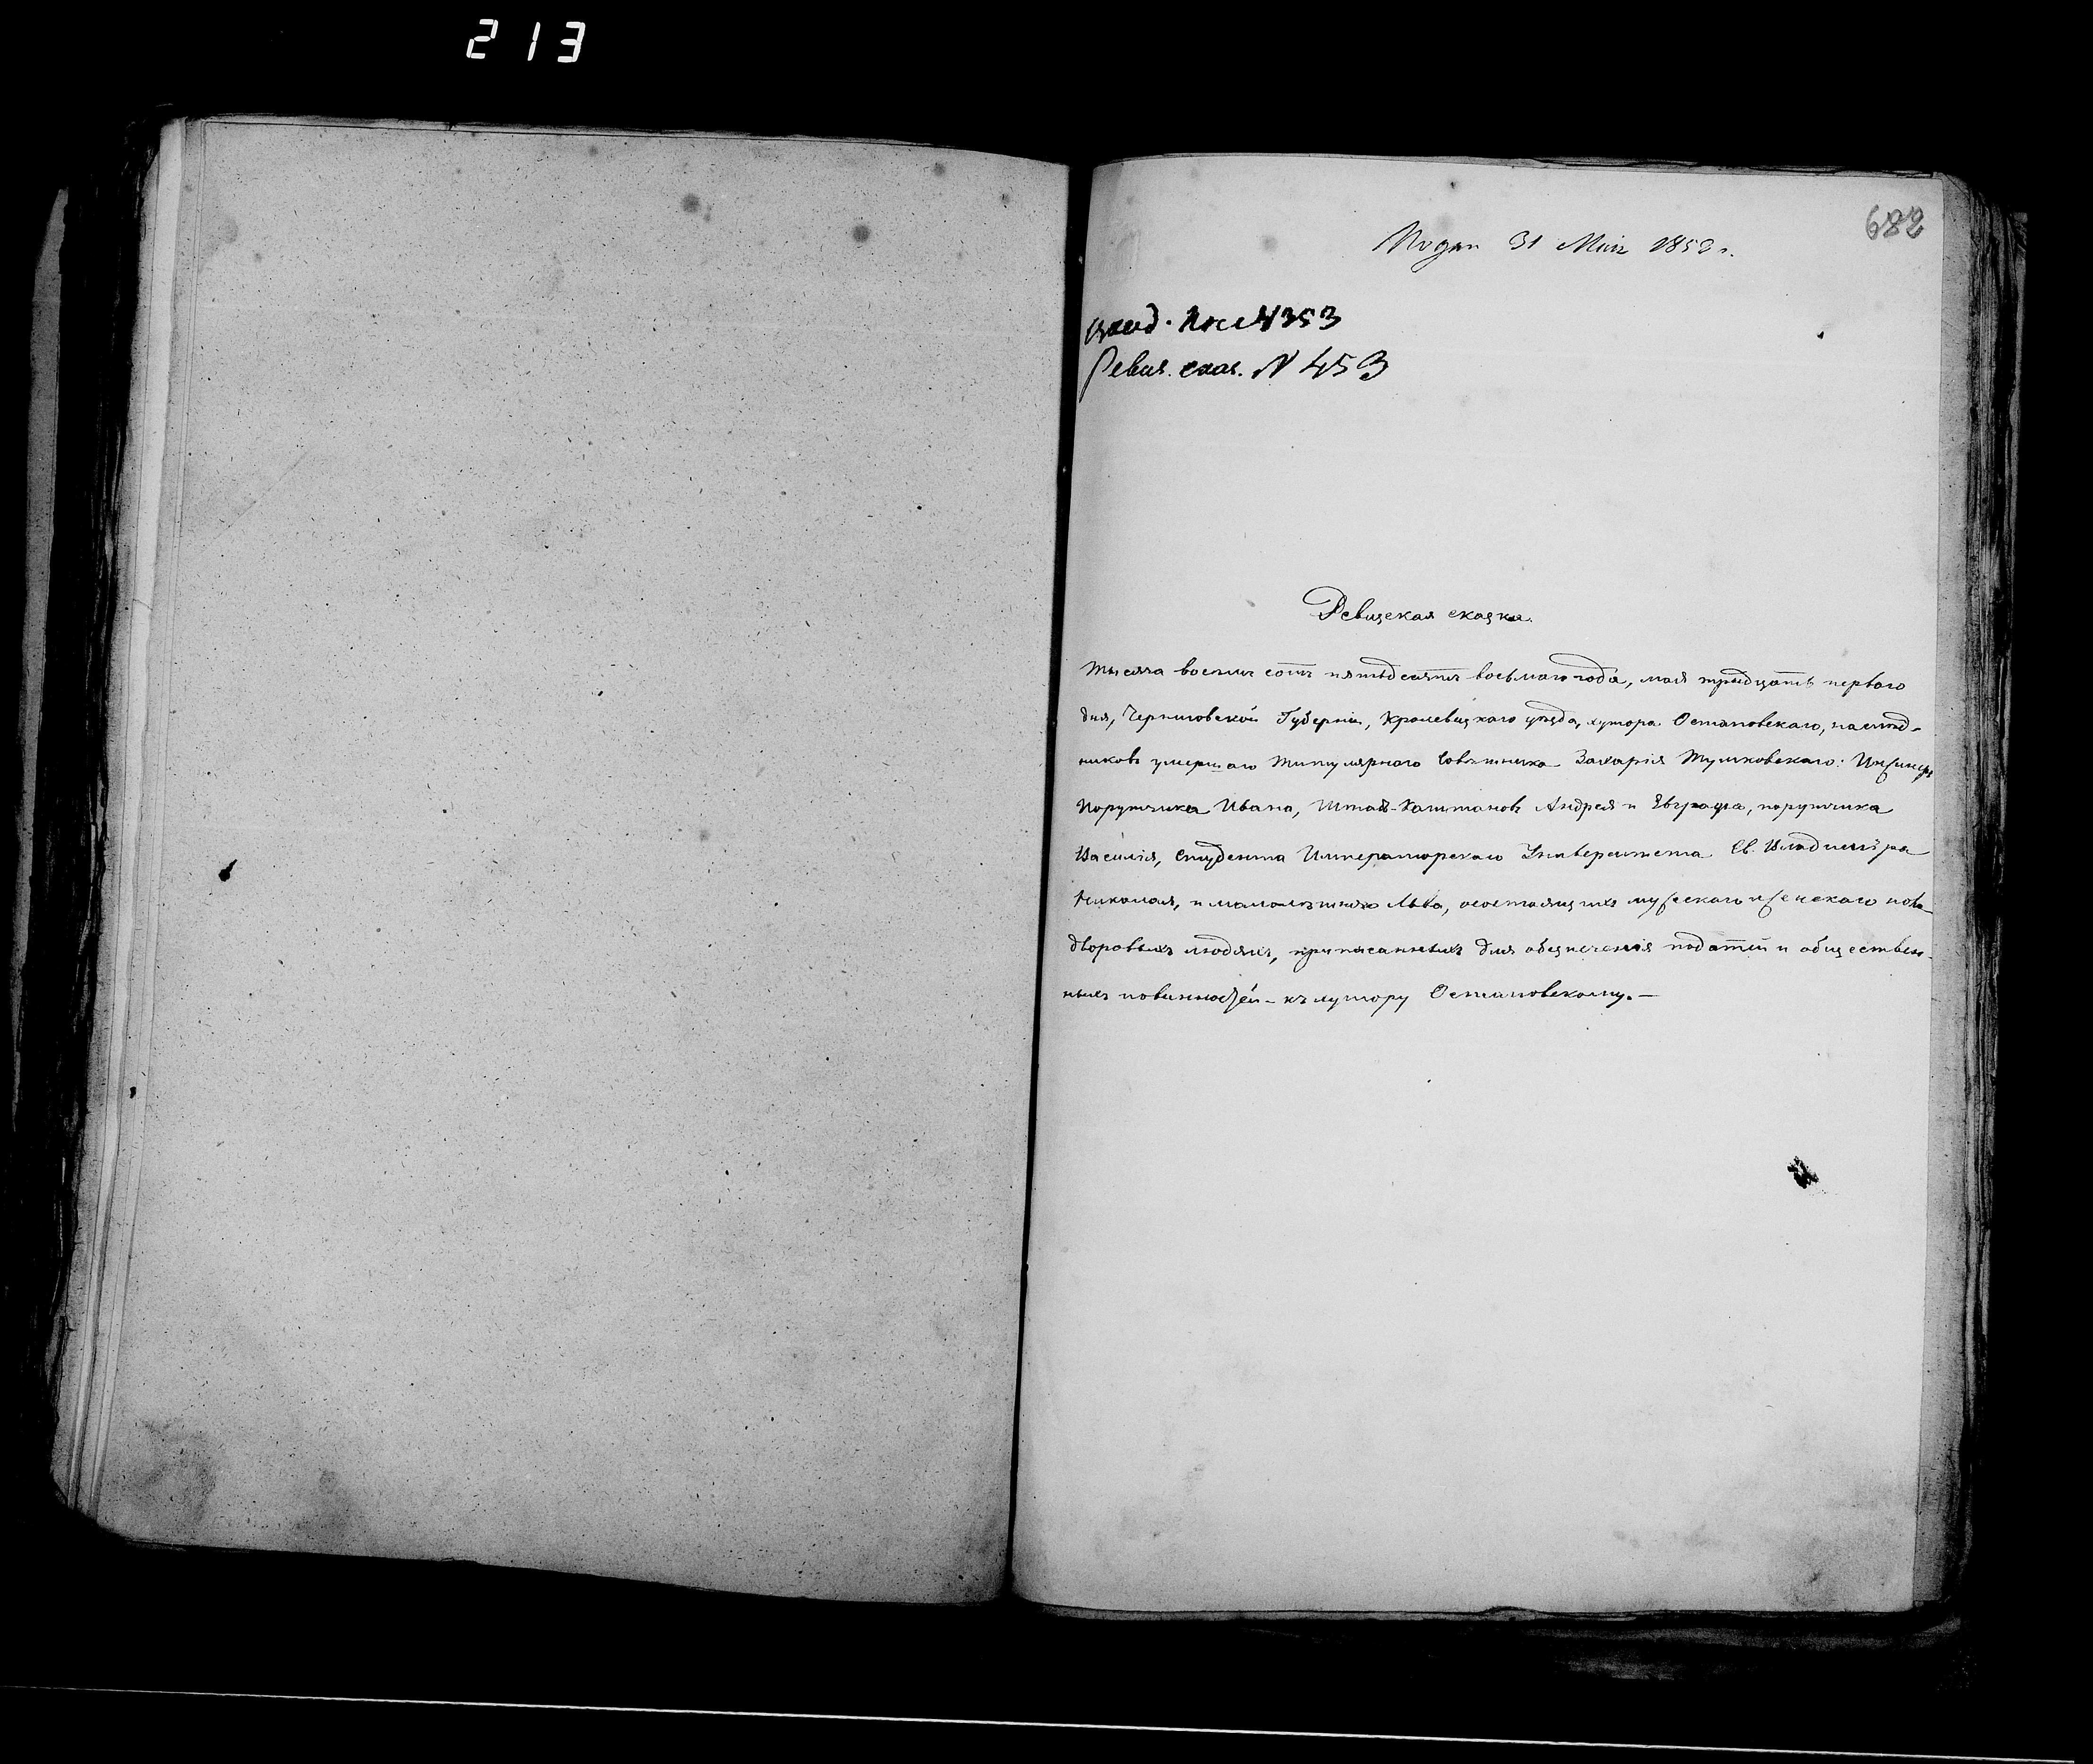 213
682
Подан 31 Мая 1858 г.
вход. № 4353
Ревиз. сказ. N 453
Ревизская сказка.
Тысяча восемь сотъ пятьдесятъ восьмаго года, мая тридцать перваго
дня, Черниговской Губерніи, Кролевецкаго уѣзда, хутора Остановскаго, наслѣд-
никовъ умершаго Титулярнаго Совѣтника Захарія Тулиновскаго: Инженеръ
Порутчика Ивана, Штабъ-Капитановъ Андрея и Евграфа, порутчика
Василія, Студента Императорскаго Университета Св. Владиміра
Николая, и малолѣтняго Льва, о состоящихъ мужескаго и женскаго пола
дворовыхъ людяхъ, приписанныхъ для обезпеченія податей и обществен-
ныхъ повинностей - къ хутору Остановскому. —